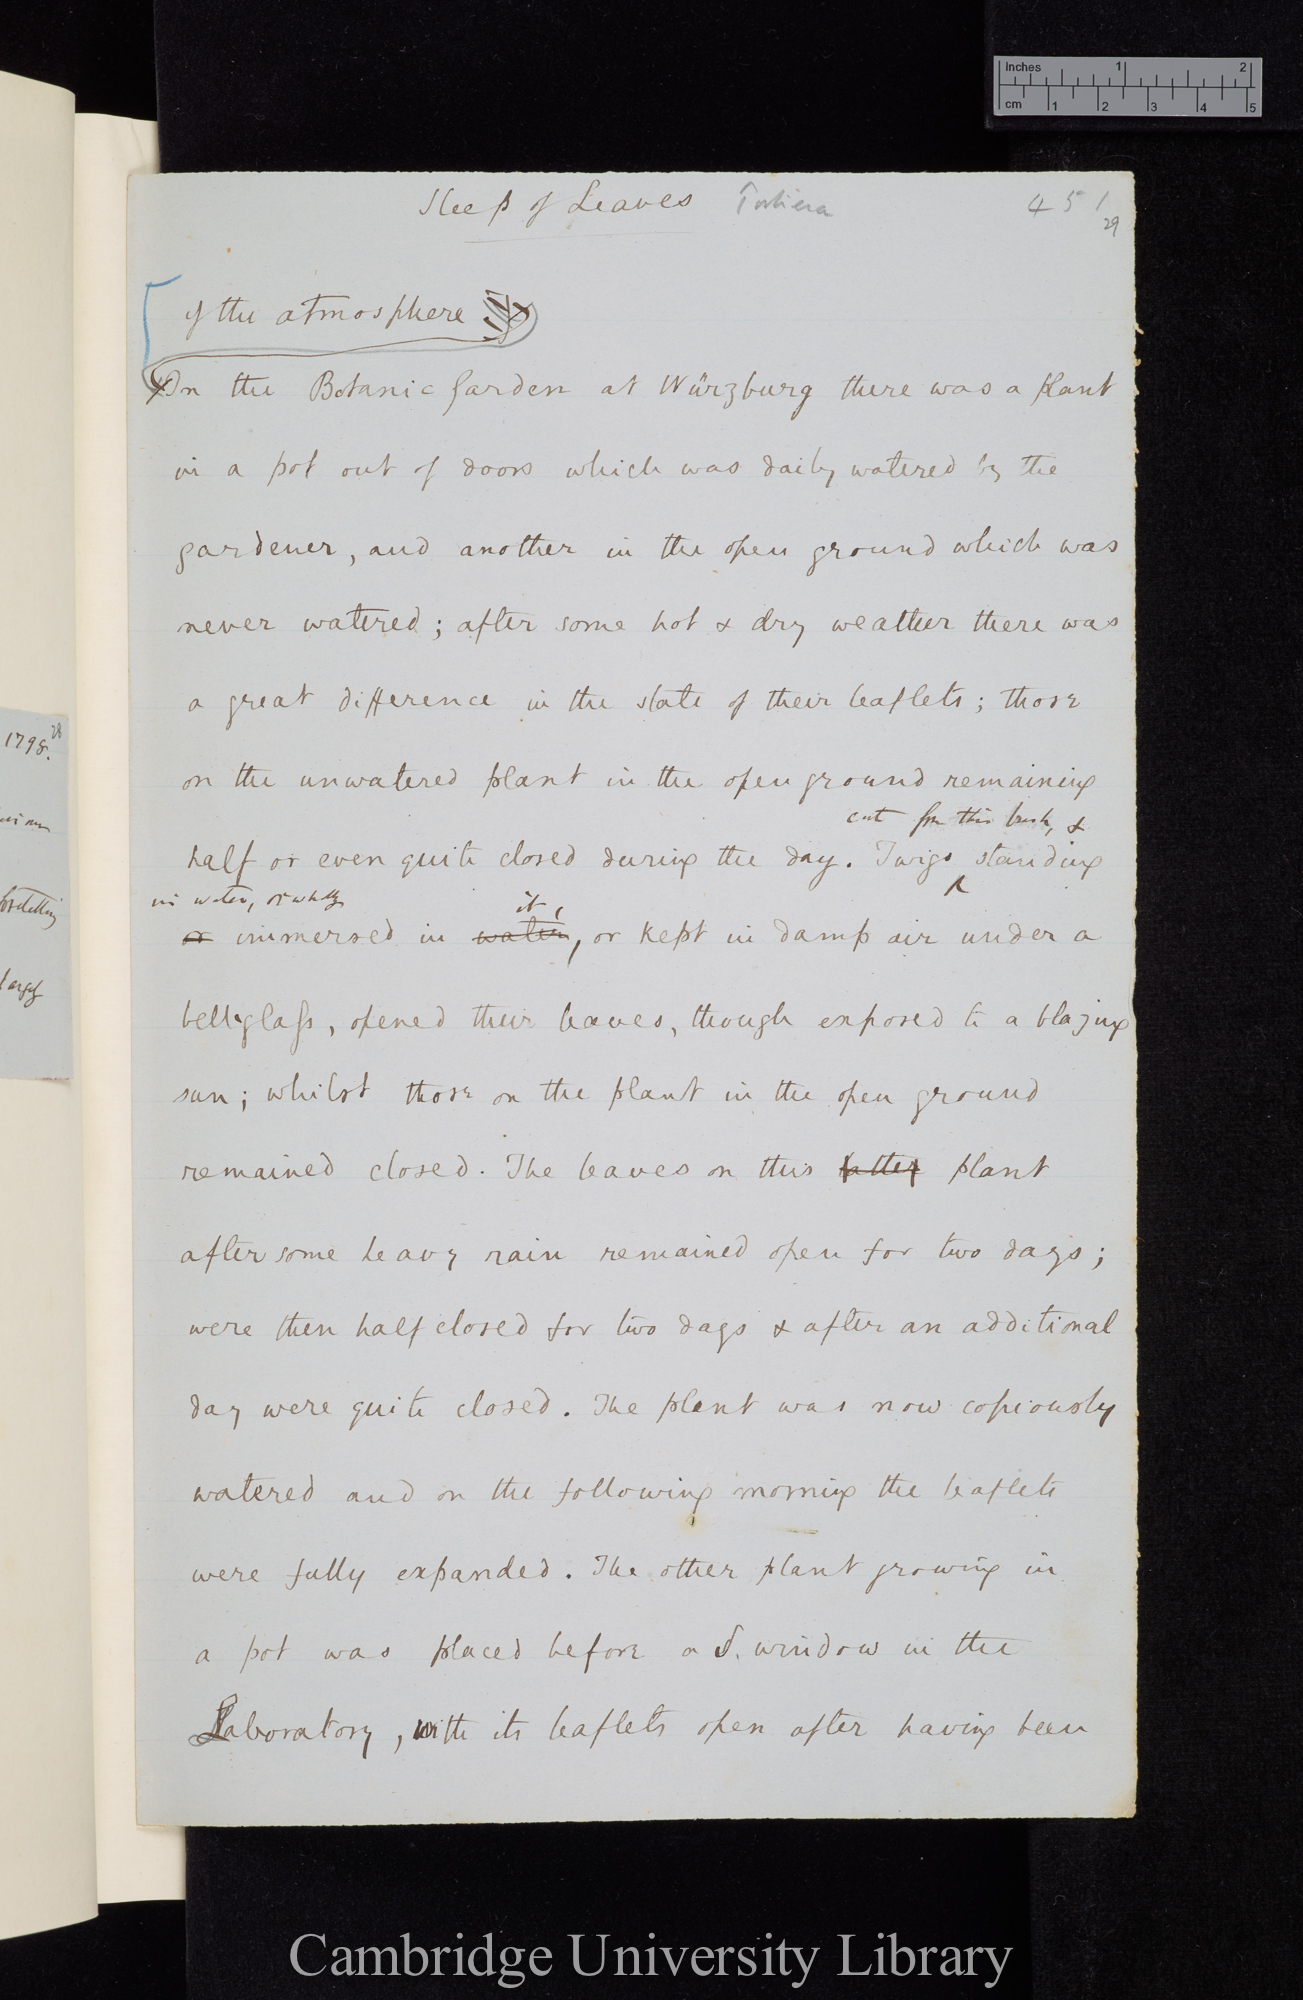 Inches 1 2
cm 1 2 3 4 5
Sleep of Leaves Porliera 451
29
of the atmosphere
In the Botanic Garden at Würzburg there was a plant
in a pot out of doors which was daily watered by the
gardener, and another in the open ground which was
never watered; after some hot & dry weather there was
a great difference in the state of their leaflets; those
on the unwatered plant in the open ground remaining
cut from this bush, &
half or even quite closed during the day. Twigs standing
in water, or wholly it,
or immersed in water, or kept in damp air under a
bell-glass, opened their leaves, though exposed to a blazing
sun; whilst those on the plant in the open ground
remained closed. The leaves on this latter plant
after some heavy rain remained open for two days;
were then half closed for two days & after an additional
day were quite closed. The plant was now copiously
watered and on the following morning the leaflets
were fully expanded. The other plant growing in
a pot was placed before a S. window in the
Laboratory, with its leaflets open after having been
1798.
28
largely
Cambridge University Library